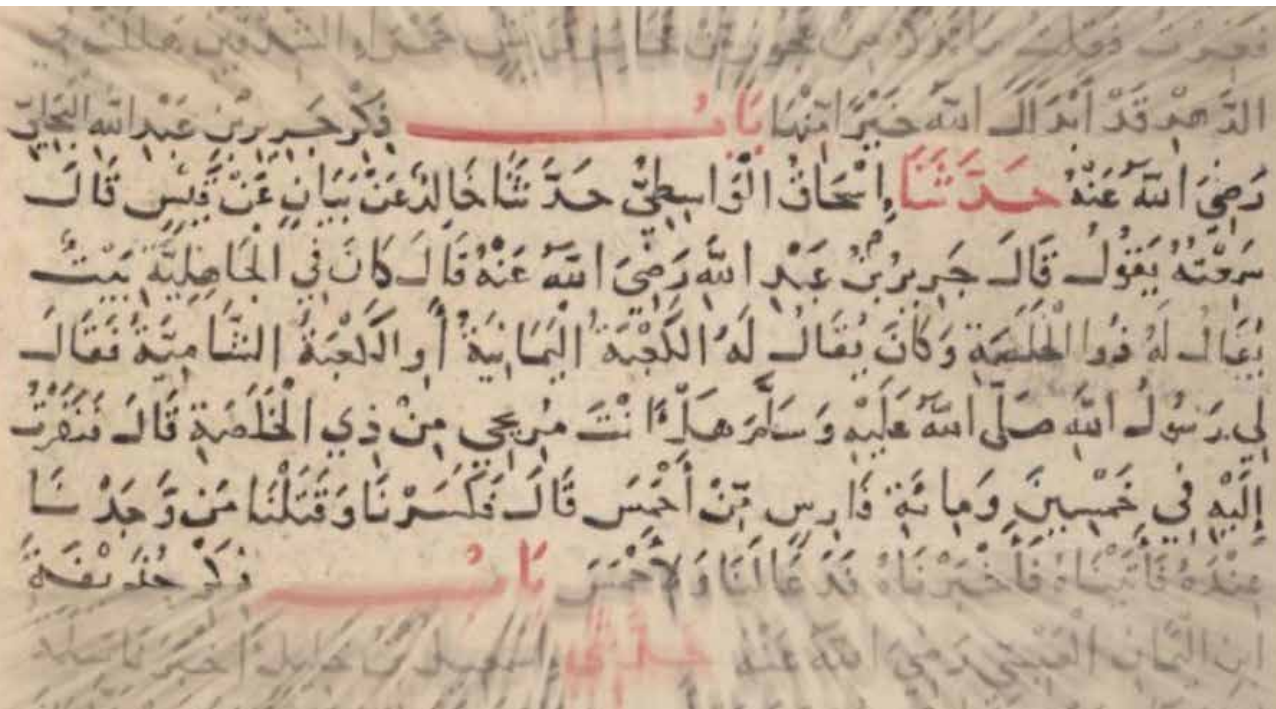 فغرت فقلت ما تذكر من عجوز من عجائز قريش حمراء الشدقين هلكت في
الدَّهْرِ قَدْ أَبْدَلَكَ اللهُ خَيْرًا مِنْهَا بَابُ ذِكْرِ جَرِيرِ بْنِ عَبْدِ اللهِ الْبَجَلِيِّ
رَضِيَ اللهُ عَنْهُ حَدَّثَنَا إِسْحَاقُ الْوَاسِطِيُّ حَدَّثَنَا خَالِدٌ عَنْ بَيَانٍ عَنْ قَيْسٍ قَالَ
سَمِعْتُهُ يَقُولُ قَالَ جَرِيرُ بْنُ عَبْدِ اللهِ رَضِيَ اللهُ عَنْهُ قَالَ كَانَ فِي الْجَاهِلِيَّةِ بَيْتٌ
يُقَالُ لَهُ ذُو الْخَلَصَةِ وَكَانَ يُقَالُ لَهُ الْكَعْبَةُ الْيَمَانِيَةُ أَوِ الْكَعْبَةُ الشَّامِيَّةُ فَقَالَ
لِي رَسُولُ اللهِ صَلَّى اللهُ عَلَيْهِ وَسَلَّمَ هَلْ أَنْتَ مُرِيحِي مِنْ ذِي الْخَلَصَةِ قَالَ فَنَفَرْتُ
إِلَيْهِ فِي خَمْسِينَ وَمِائَةِ فَارِسٍ مِّنْ أَحْمَسَ قَالَ فَكَسَرْنَا وَقَتَلْنَا مَنْ وَجَدْنَا
عِنْدَهُ فَأَتَيْنَاهُ فَأَخْبَرْنَاهُ فَدَعَا لَنَا وَلِأَحْمَسَ بَابُ ذِكْرِ حُذَيْفَةَ
ابن اليمان العبسي رضي الله عنه حدثني إسمعيل بن خليل أخبرنا سلمة